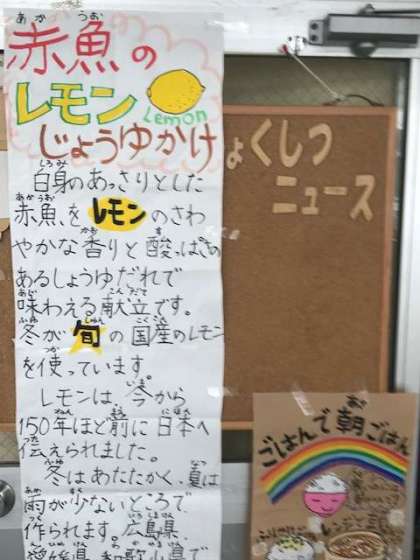 赤魚の
レモン
Lemon
じょうゆかけ
白身のあっさりとした
赤魚を レモン のさわ
やかな香りと酸っぱさの
あるしょうゆだれで
味わえる献立です。
冬が 旬 の国産のレモン
を使っています。
レモンは、今から
150年ほど前に日本へ
伝えられました。
冬はあたたかく、夏は
雨が少ないところで
作られます。広島県、
愛媛県、和歌山県で
ょくしつ
ニュース
ごはんで朝ごはん